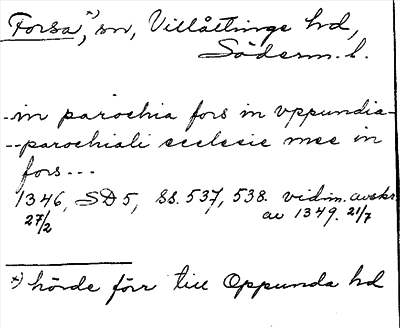 Forsa*), sn, Villåttinge hd,
Söderm. l.
--in parochia fors in vppundia-
--parochiali ecclesie mee in
fors---
1346, SD 5, ss. 537, 538. vidim. avskr.
27/2 av 1349. 21/7
*) hörde förr till Oppunda hd